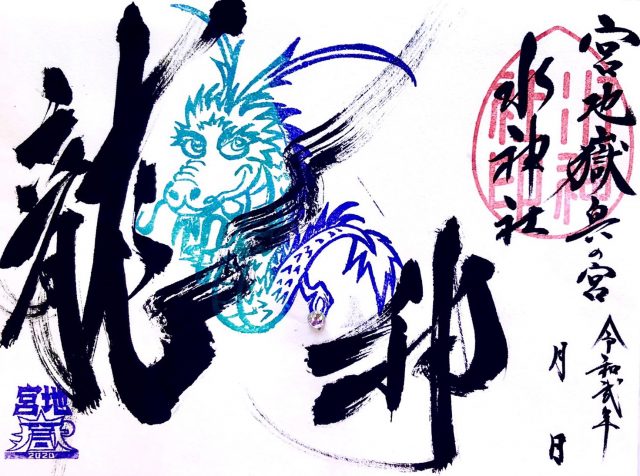 宮地嶽奥の宮
水神社
令和弐年
月 日
龍神
宮地
嶽
2020